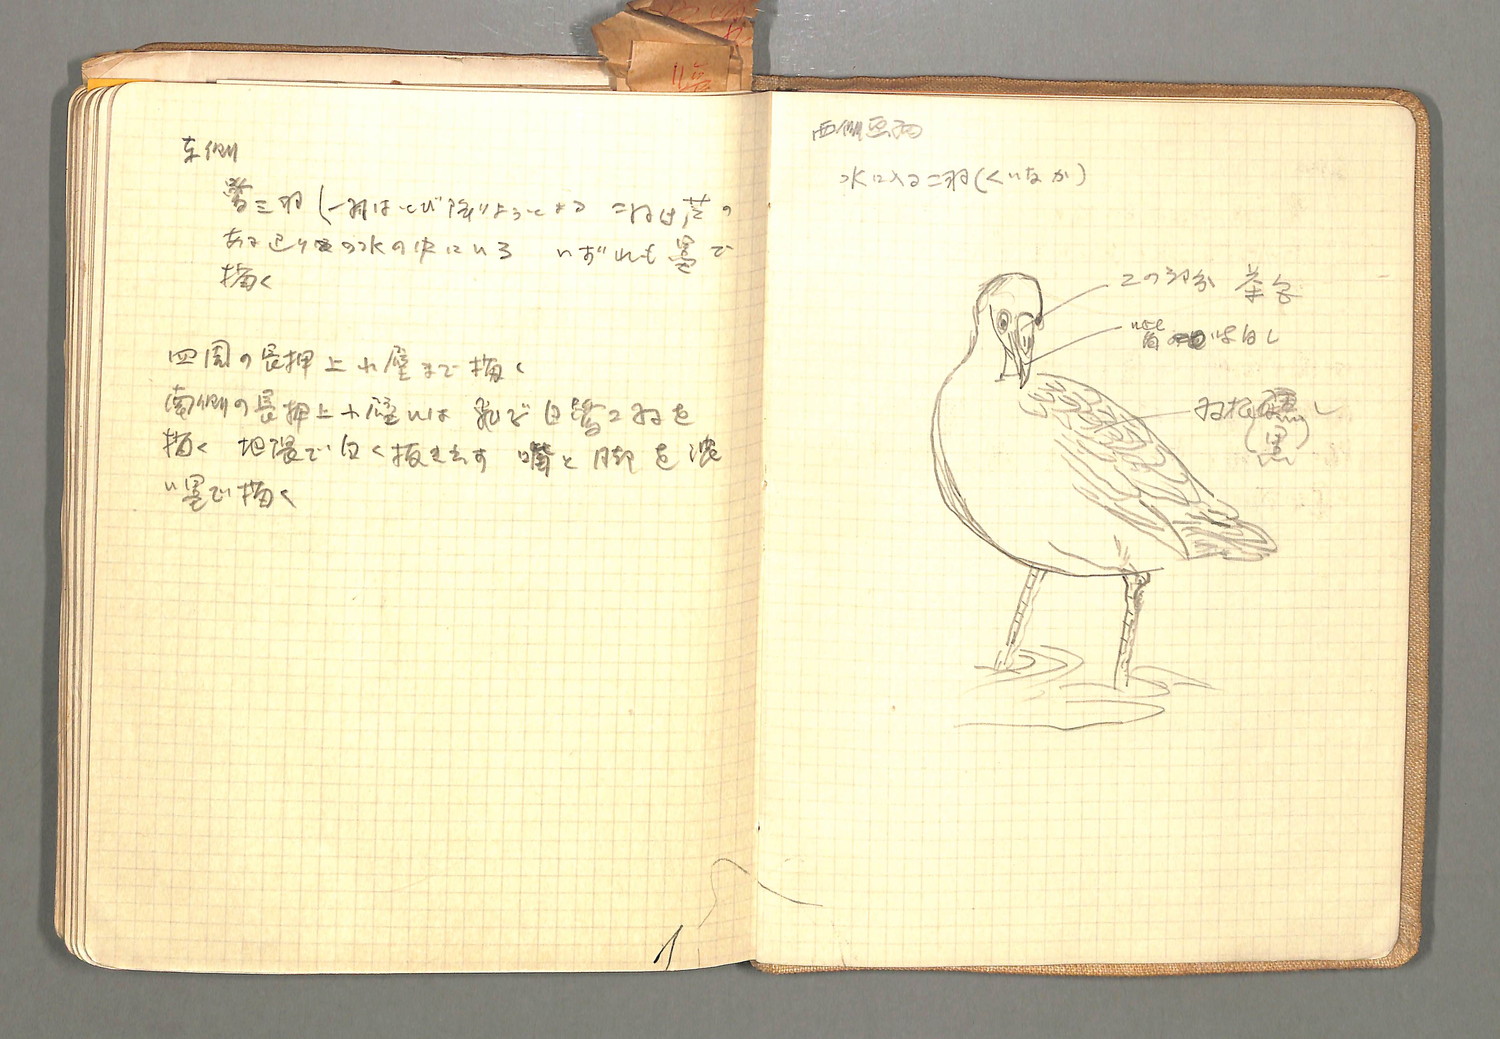 東側
鷺三羽(一羽はとび降りようとする 二羽は芦の
ある辺りの水の中にいる いずれも墨で
描く
四周の長押上小壁まで描く
南側の長押上小壁には 飛ぶ白鷺二羽を
描く 地隈で白く抜き出す 嘴と脚を濃
い墨で描く
西側
水に入る二羽(くいなか)
この部分 茶色
嘴は白し
羽根 黒し
(黒)